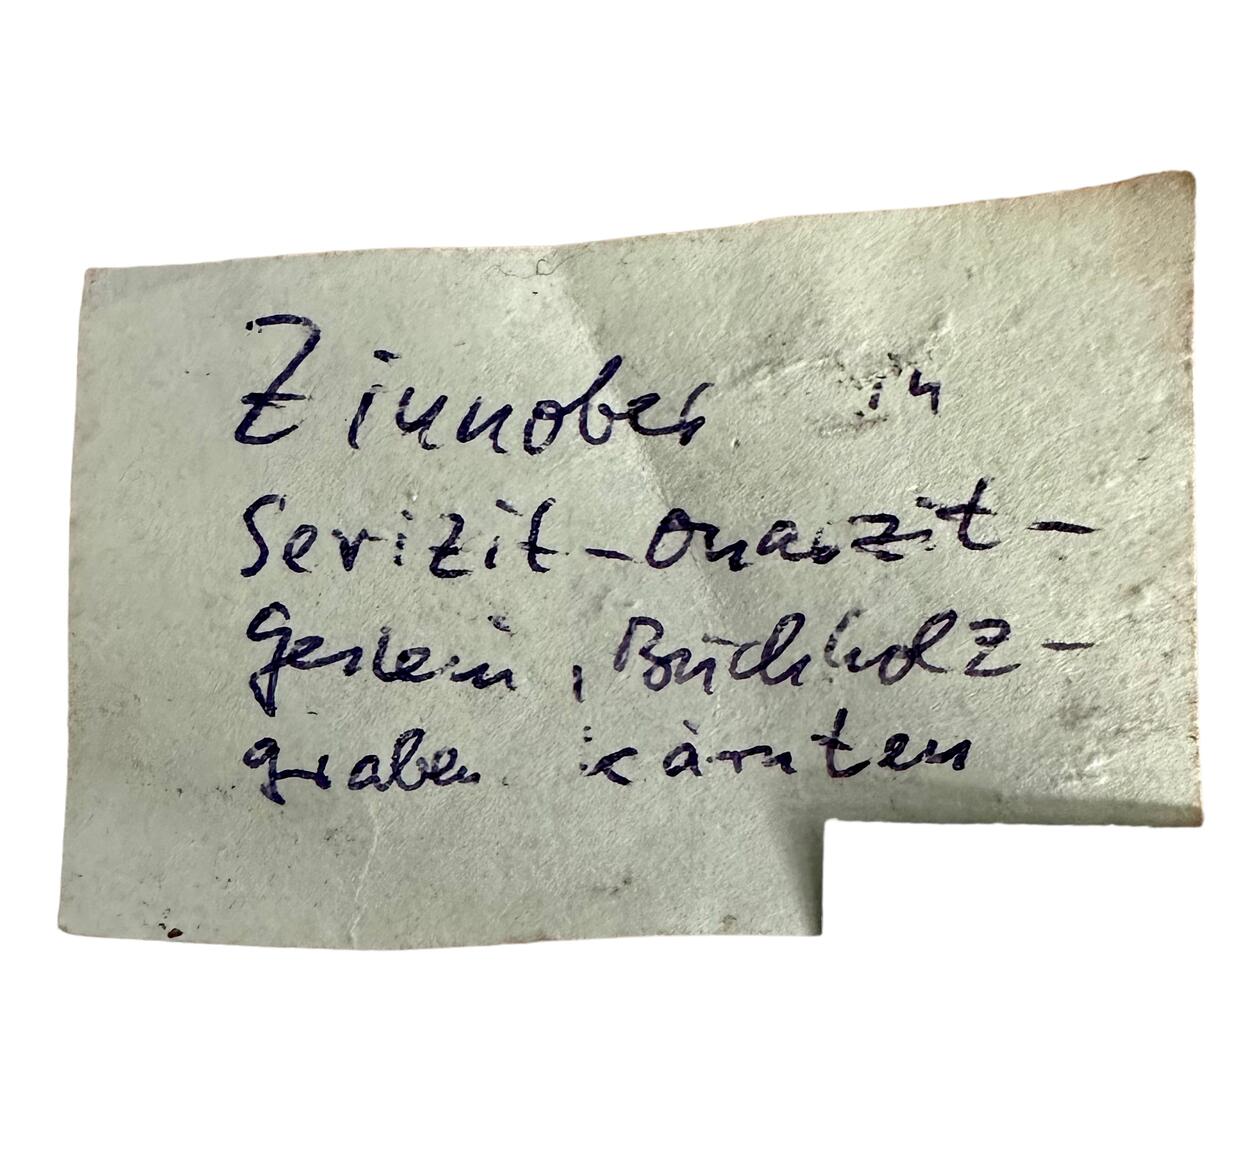 Zinnober in
Serizit-Quarzit-
gestein, Buchholz-
graben Kärnten